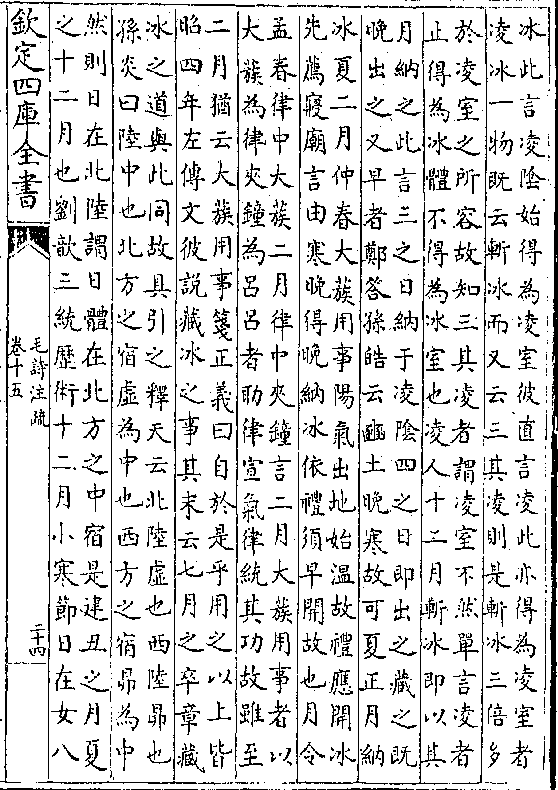 冰此言凌陰始得為凌室彼直言凌此亦得為凌室者
凌冰一物既云斬冰而又云三其凌則是斬冰三倍多
於凌室之所容故知三其凌者謂凌室不然單言凌者
止得為冰體不得為冰室也凌人十二月斬冰即以其
月納之此言三之日納于凌陰四之日即出之藏之既
晚出之又早者鄭答孫皓云豳土晚寒故可夏正月納
冰夏二月仲春大蔟用事陽氣出地始溫故禮應開冰
先薦寢廟言由寒晚得晚納冰依禮須早開故也月令
孟春律中大蔟二月律中夾鐘言二月大蔟用事者以
大蔟為律夾鐘為呂呂者助律宣氣律統其功故雖至
二月猶云大蔟用事箋正義曰自於是乎用之以上皆
昭四年左傳文彼説藏冰之事其末云七月之卒章藏
冰之道與此同故具引之釋天云北陸虛也西陸昴也
孫炎曰陸中也北方之宿虛為中也西方之宿昴為中
然則日在北陸謂日體在北方之中宿是建丑之月夏
之十二月也劉歆三統歷術十二月小寒節日在女八
欽定四庫全書
毛詩注疏
卷十五
二十四